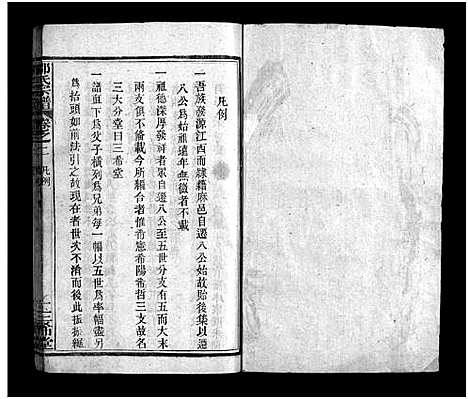 凡例
一吾族發源江西而隸籍麻邑自遷八公始故貽後集以遷
八公為始祖遠年無徵者不載
一祖德深厚發祥者眾自遷八公至五世分支有五而大末
兩支俱不備載今所續合者惟希憲希陽希哲三支故名
三大分堂曰三希堂
一譜直下為父子橫列為兄弟每一幅以五世為率幅盡另
為抬頭如前法引之故現在者世次不淆而此振
氏宗譜
卷之一
凡例
三希堂